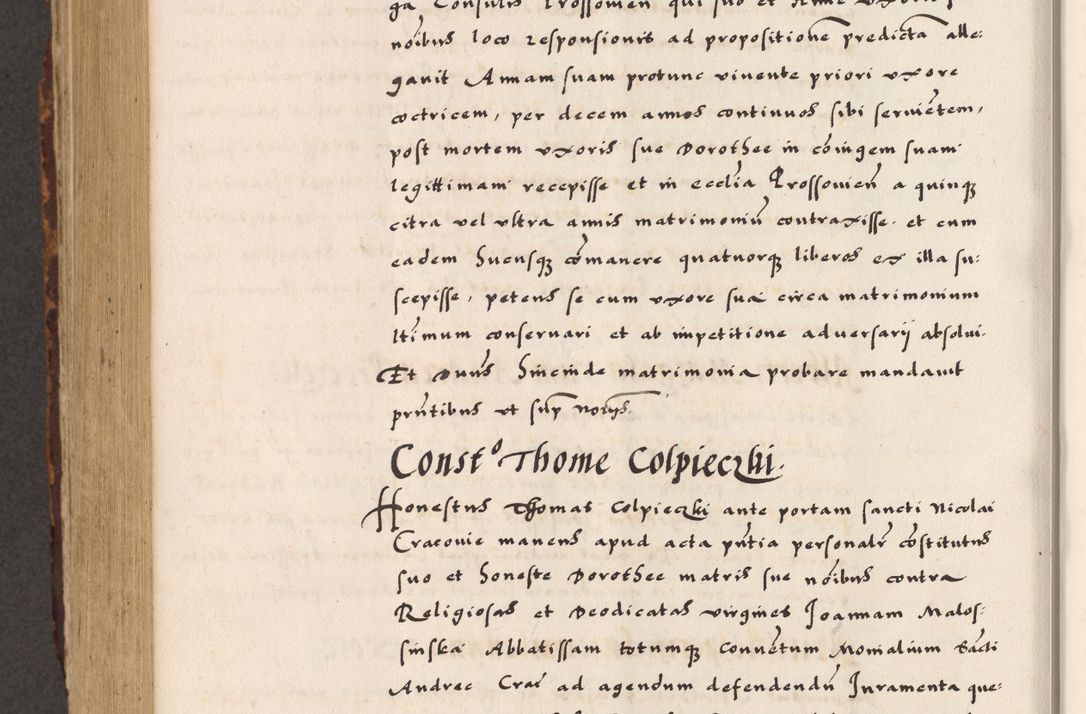 ga Consulis Prossouien̄ qui suo et Anne vxoris
nōibus loco responsionis ad propositionē predictā alle:
gauit Annam suam protunc viuente priori vxore
coctricem, per decem annos continuos sibi seruiētem,
post mortem vxoris sue Dorothee in cōiugem suam
legittimam recepisse et in ecclīa Prossouien̄ a quinqȝ
citra vel vltra annis matrimoniū contraxisse, et cum
eadem hucusqȝ cōmanere quatuorqȝ liberos ex illa su:
scepisse, petens se cum vxore sua circa matrimonium
ltīmum conseruari et ab impetitione aduersarij absolui.
Et Dn̄us hincinde matrimonia probare mandauit
prn̄tibus vt sup̄ notijs.
Constᵒ Thome Colpieczki.
Honestus Thomas Colpieczki ante portam sancti Nicolai
Cracouie manens apud acta pn̄tia personalr̄ cōstitutus
suo et honeste Dorothee matris sue nōibus contra
Religiosas et Deodicatas virgines Joannam Malos:
sinska Abbatissam totumqȝ Conuētum Monialium Sācti
Andree Crac̄ ad agendum defendendū Juramenta que: